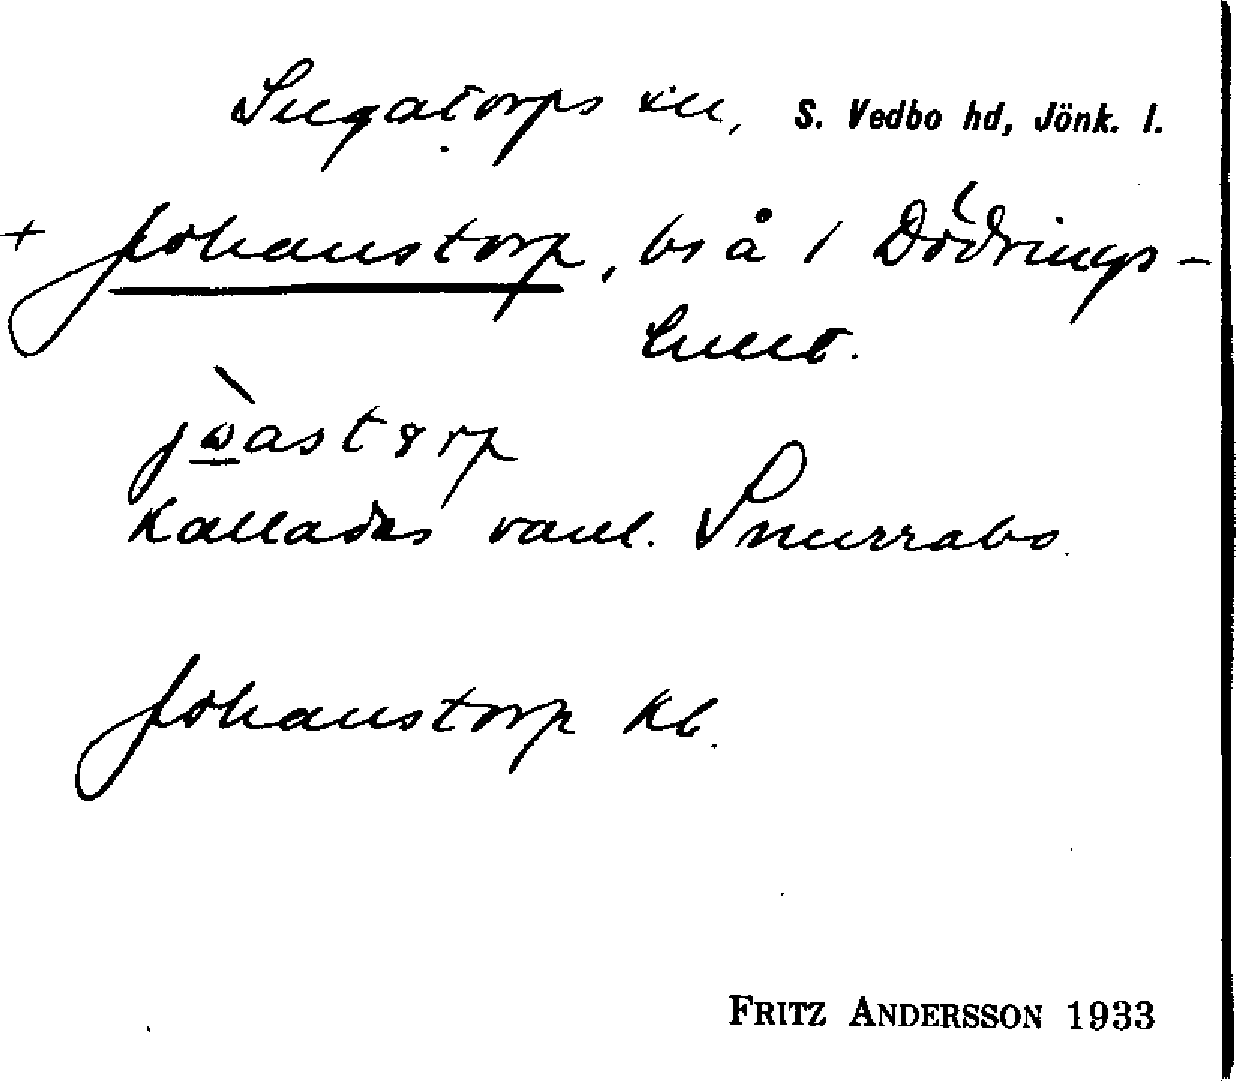 Ingatorps sn, S. Vedbo hd, Jönk. l.
+ Johanstorp, bs å 1 Dödrings-
hult.
Kallades vanl. Snurrabo.
Johanstorp Kb.
FRITZ ANDERSSON 1933